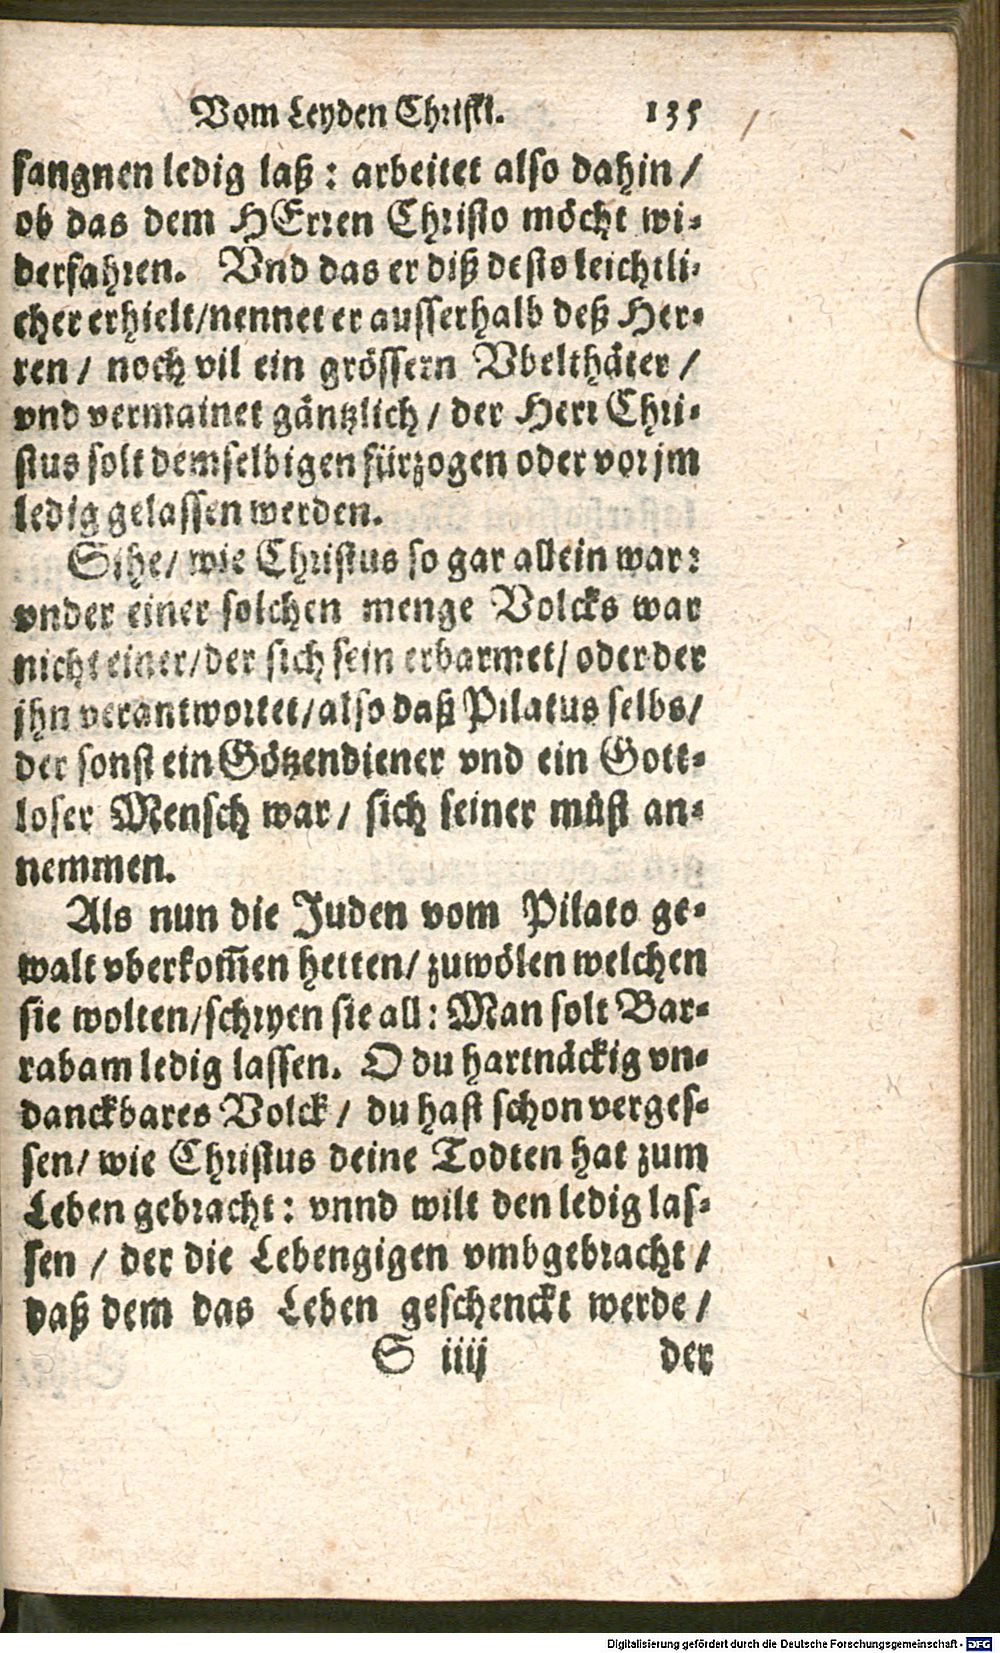 Vom Leyden Christi. 135
fangnen ledig laß : arbeitet also dahin /
ob das dem HErren Christo möcht wi-
derfahren. Vnd das er diß desto leichtli-
cher erhielt/nennet er ausserhalb deß Her-
ren / noch vil ein grössern Vbelthäter /
vnd vermainet gäntzlich / der Herr Chri-
stus solt demselbigen fürzogen oder vor jm
ledig gelassen werden.
Sihe/ wie Christus so gar allein war:
vnder einer solchen menge Volcks war
nicht einer/der sich sein erbarmet/ oder der
jhn verantwortet/also daß Pilatus selbs/
der sonst ein Götzendiener vnd ein Gott-
loser Mensch war/ sich seiner müst an-
nemmen.
Als nun die Juden vom Pilato ge-
walt vberkom̃en hetten/ zuwölen welchen
sie wolten/schryen sie all: Man solt Bar-
rabam ledig lassen. O du hartnäckig vn-
danckbares Volck / du hast schon verges-
sen/ wie Christus deine Todten hat zum
Leben gebracht: vnnd wilt den ledig las-
sen / der die Lebengigen vmbgebracht /
daß dem das Leben geschenckt werde /
S iiij der
Digitalisierung gefördert durch die Deutsche Forschungsgemeinschaft - DFG